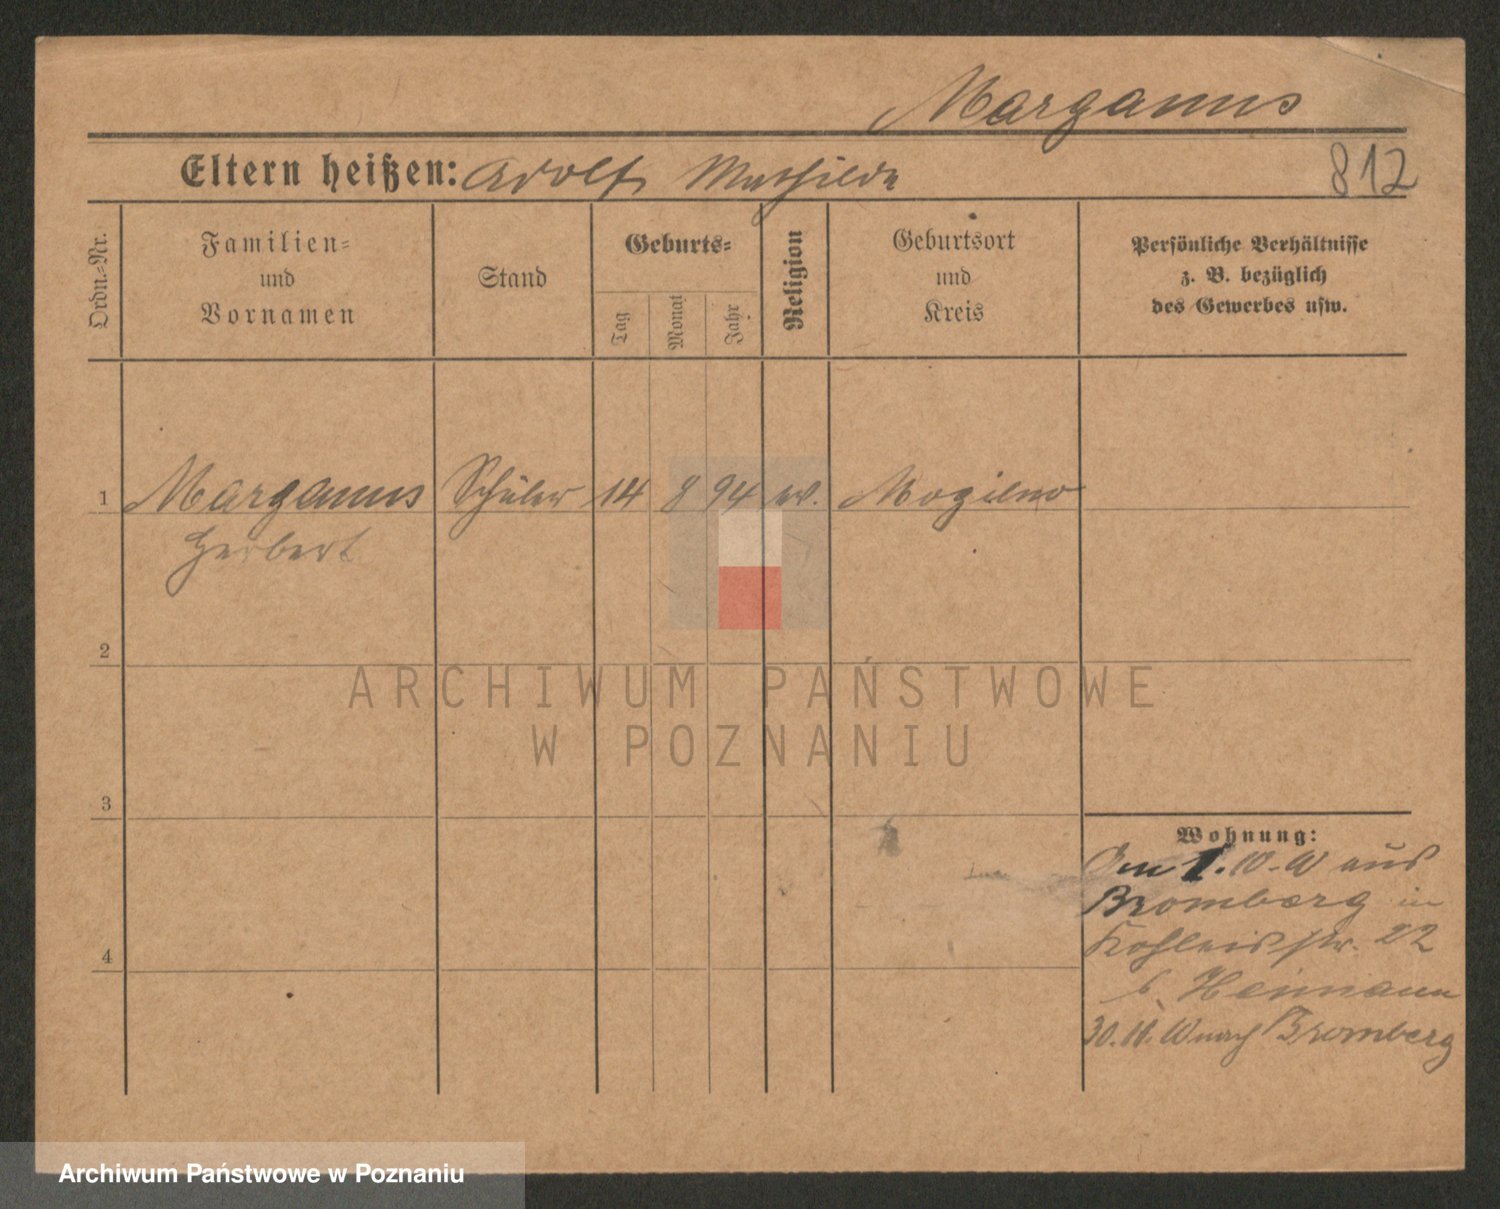 Marganus
Eltern heißen: Adolf Mathilde
812
Ordn.-Nr.
Familien-
und
Vornamen
Stand
Geburts-
Tag
Monat
Jahr
Religion
Geburtsort
und
Kreis
Persönliche Verhältnisse
z. B. bezüglich
des Gewerbes usw.
1 Marganus Schüler 14 8 94 ev. Mogilno
Herbert
2
ARCHIWUM PAŃSTWOWE
W POZNANIU
3
Wohnung:
Am 1. 10. aus
Bromberg in
str. 22
b. Heimann
30. 11. nach Bromberg
4
Archiwum Państwowe w Poznaniu